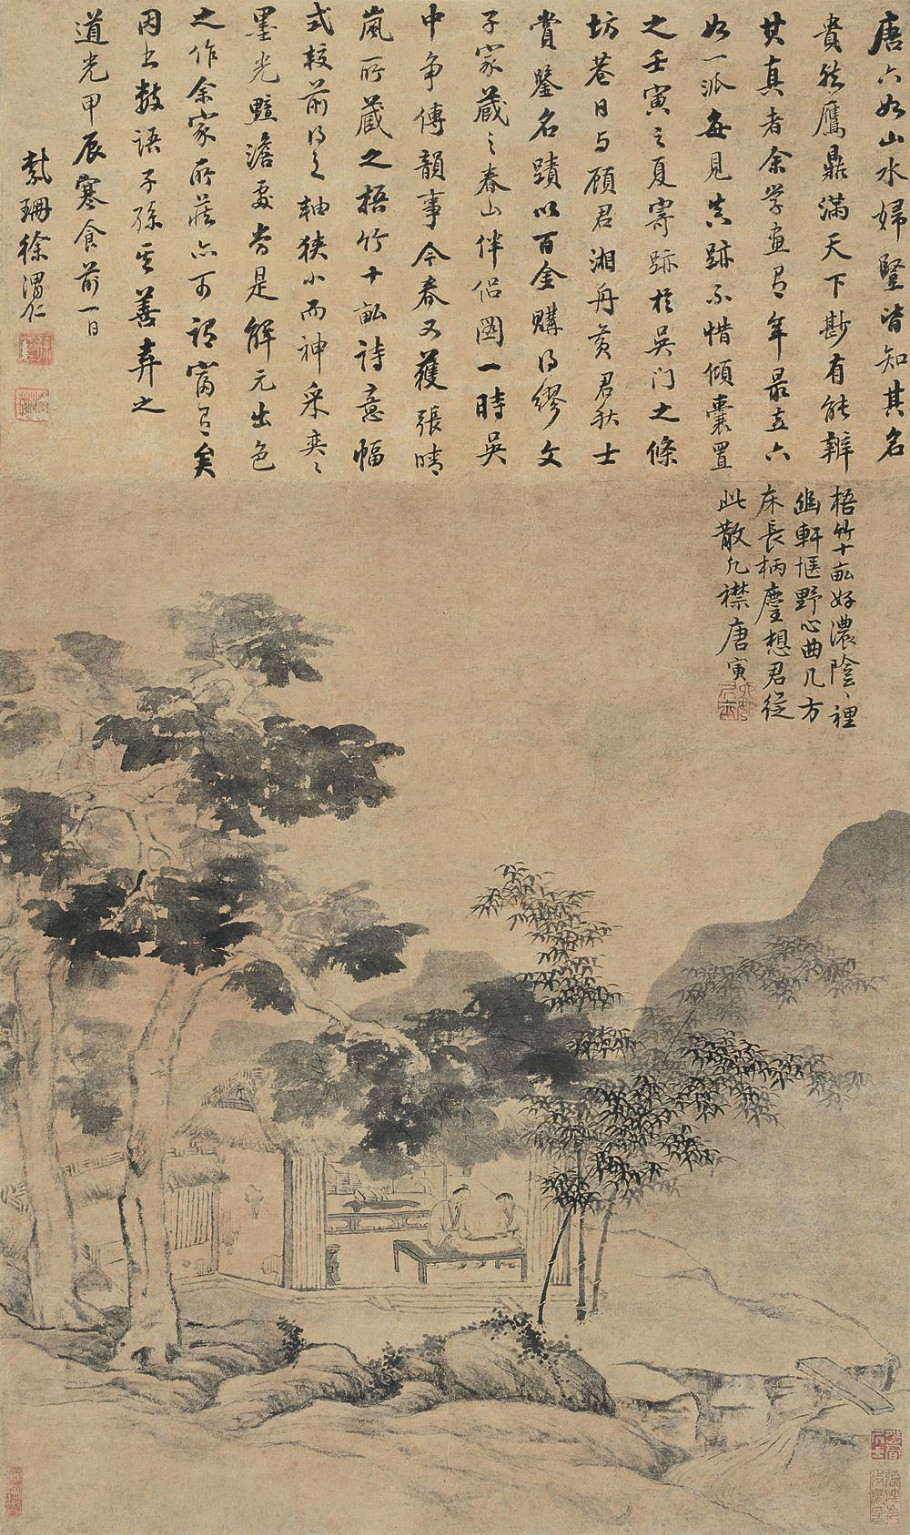 唐六如山水婦豎皆知其名
貴然鷹鼎滿天下尠有能辨
其真者余學畫有年最立六
如一派每見真跡不惜傾囊置
之壬寅之夏寄跡於吴门之條
坊巷日与顧君湘舟黄君秋士
賞鑒名蹟以百金購得繆文
子家藏之春山伴侣圖一時吴
中争傳韻事今春又獲張晴
嵐所藏之梧竹十畝詩意幅
式較前得之軸狭小而神采奕〻
墨光黯澹處劣是解元出色
之作余家所藏亦可謂富有矣
因书數語子孫其善弆之
道光甲辰寒食前一日
紫珊徐渭仁
梧竹十畝好濃陰〻裡
幽軒愜野心曲几方
床長柄麈想君從
此散凢襟唐寅